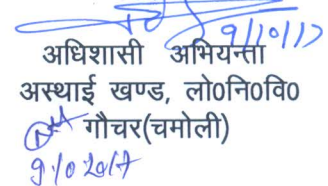 9/10/17
अधिशासी अभियन्ता
अस्थाई खण्ड, लो०नि०वि०
गौचर(चमोली)
9/10/2017